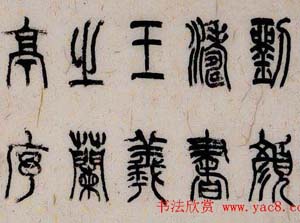 劉顏
濤書
王羲
之蘭
亭序
书法欣赏
www.yac8.com